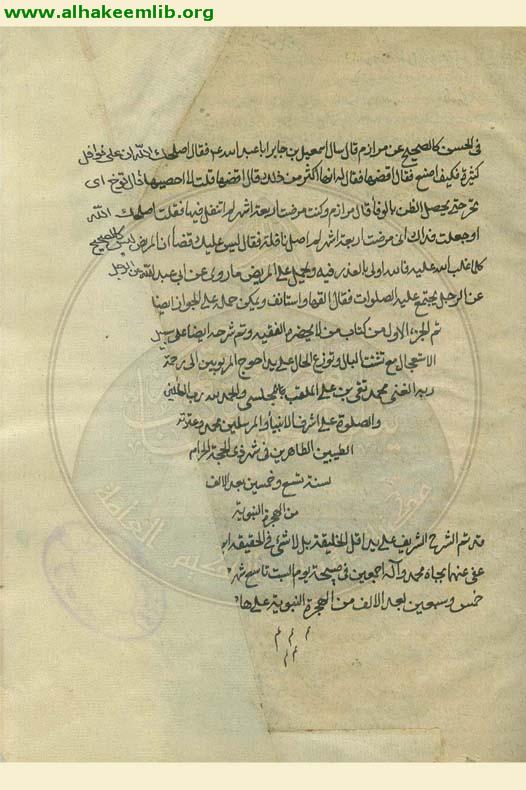 www.alhakeemlib.org
في الحسن كالصحيح عن مرازم قال سال اسمعيل بن جابر ابا عبد الله ع فقال اصلحك الله ان علي نوافل
كثيرة فكيف اصنع فقال اقضها فقال له انها اكثر من ذلك قال اقضها قلت لا احصيها قال توخ اى
تحر حتى يحصل الظن بالوفا قال مرازم وكنت مرضت اربعة اشهر لم اتنفل فيها فقلت اصلحك الله
او جعلت فداك انى مرضت اربعة اشهر لم اصل نافلة فقال ليس عليك قضا ان المريض ليس كالصحيح
كلما غلب الله عليه فالله اولى بالعذر فيه ويحمل على المريض ما روى عن ابى عبد الله عن الرجل
عن الرجل يجتمع عليه الصلوات فقال القها واستانف ويمكن حمله على الجواز ايضا
تم الجزء الاول من كتاب من لا يحضره الفقيه وتم شرحه ايضا على سبيل
الاستعجال مع تشتت البال وتوزع الحال على يد احوج المربوبين الى رحمة
ربه الغنى محمد تقى بن على الملقب بالمجلسى والحمد لله رب العالمين
والصلوة على اشرف الانبيأ والمرسلين محمد وعترته
الطيبين الطاهرين فى شهر ذى الحجة الحرام
لسنة تسع وخمسين بعد الالف
من الهجرة النبوية
قد تم الشرح الشريف على يد اقل الخليقة بل لا شئ فى الحقيقة
عفى عنهما بجاه محمد وآله اجمعين فى صبيحة يوم السبت تاسع شهر
خمس وسبعين بعد الالف من الهجرة النبوية على
م م م
م م